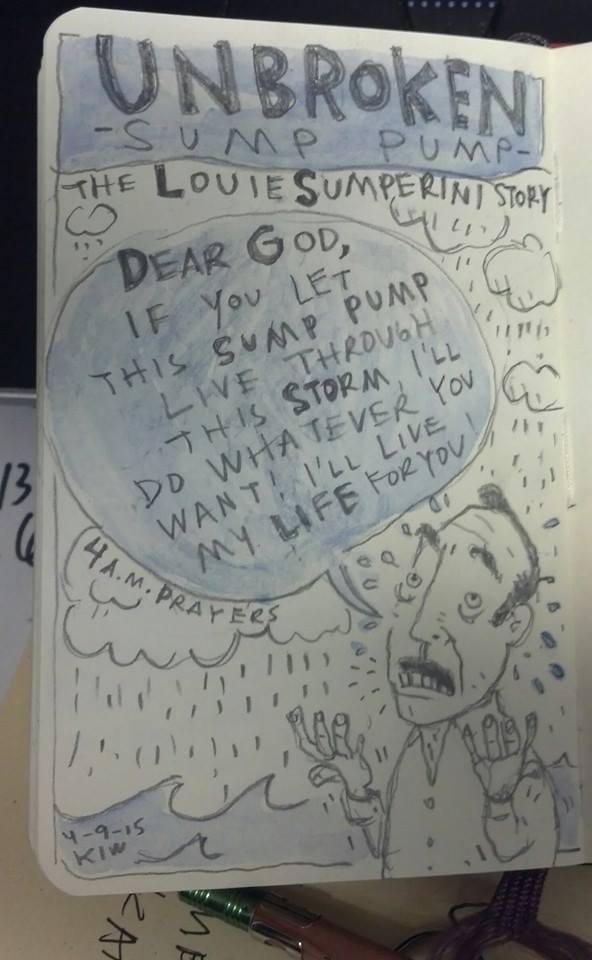 UNBROKEN
-SUMP PUMP-
THE LOUIE SUMPERINI STORY
DEAR GOD,
IF YOU LET
THIS SUMP PUMP
LIVE THROUGH
THIS STORM, I'LL
DO WHATEVER YOU
WANT! I'LL LIVE
MY LIFE FOR YOU!
4 A.M. PRAYERS
4-9-15
KIW
13